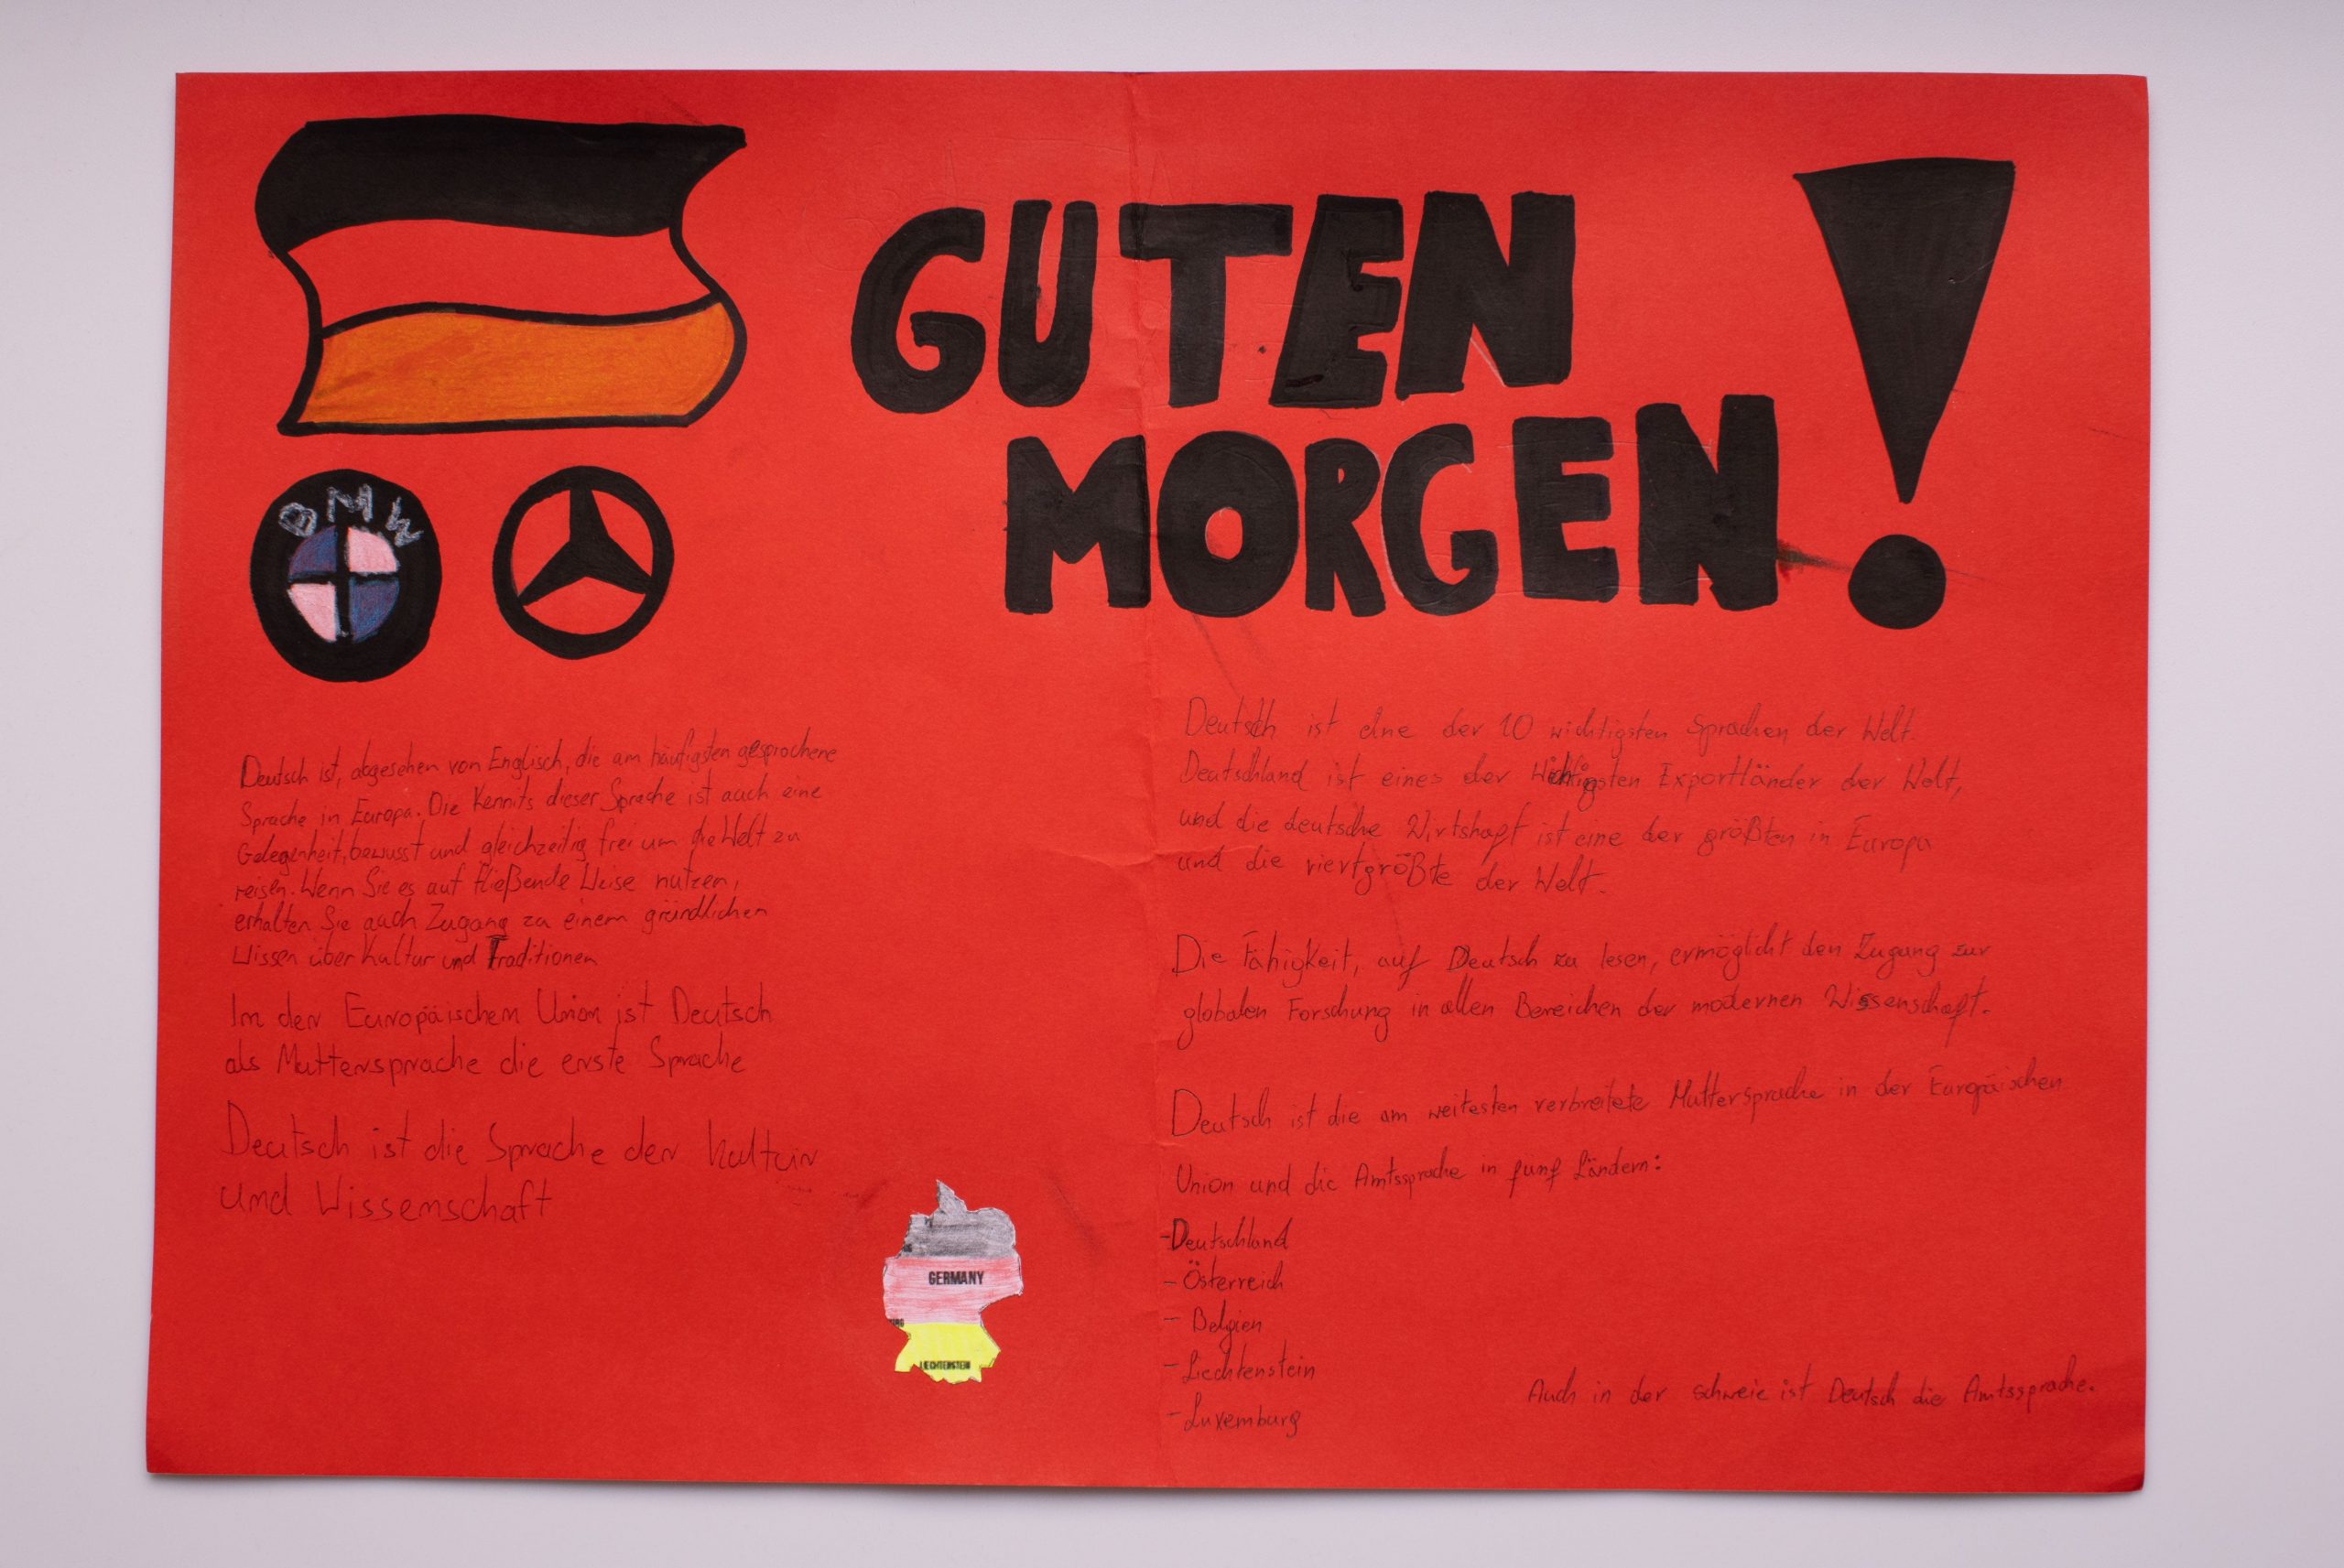 GUTEN
MORGEN!
BMW
Deutsch ist, abgesehen von Englisch, die am häufigsten gesprochene
Sprache in Europa. Die Kennits dieser Sprache ist auch eine
Gelegenheit, bewusst und gleichzeitig frei um die Welt zu
reisen. Wenn Sie es auf fließende Weise nutzen,
erhalten Sie auch Zugang zu einem gründlichen
Wissen über Kultur und Traditionen
Im der Europäischem Union ist Deutsch
als Muttersprache die erste Sprache
Deutsch ist die Sprache der Kultur
und Wissemschaft
GERMANY
LIECHTENSTEIN
Deutsch ist eine der 10 wichtigsten Sprachen der Welt.
Deutschland ist eines der Wichtigsten Exportländer der Welt,
und die deutsche Wirtshaft ist eine der größten in Europa
und die viertgrößte der Welt.
Die Fähigkeit, auf Deutsch zu lesen, ermöglicht den Zugang zur
globalen Forschung in allen Bereichen der modernen Wissenschaft.
Deutsch ist die am weitesten verbreitete Muttersprache in der Europäischen
Union und die Amtssprache in fünf Ländern:
-Deutschland
- Österreich
- Belgien
- Liechtenstein
- Luxemburg
Auch in der schweie ist Deutsch die Amtssprache.